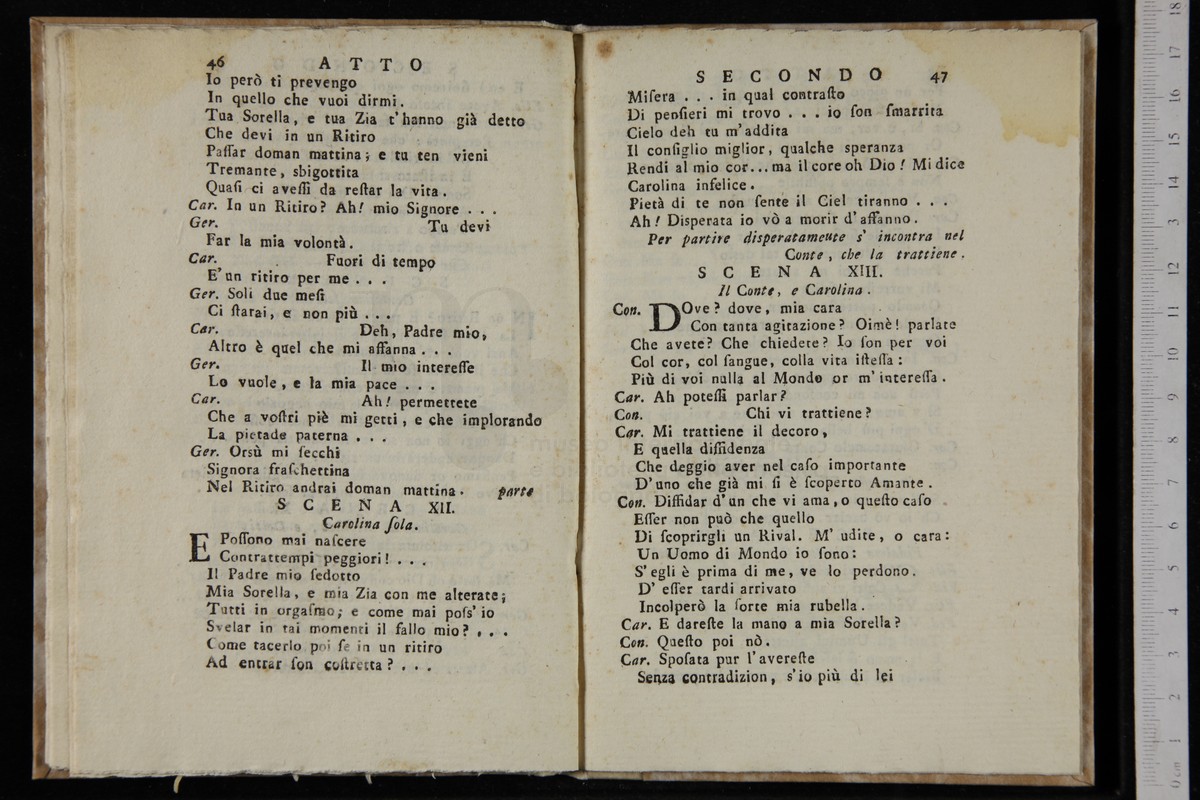 46 ATTO
Io però ti prevengo
In quello che vuoi dirmi.
Tua Sorella, e tua Zia t'hanno già detto
Che devi in un Ritiro
Paſſar doman mattina; e tu ten vieni
Tremante, sbigottita
Quaſi ci aveſſi da reſtar la vita.
Car. In un Ritiro? Ah! mio Signore . . .
Ger. Tu devi
Far la mia volontà.
Car. Fuori di tempo
E' un ritiro per me . . .
Ger. Soli due meſi
Ci ſtarai, e non più . . .
Car. Deh, Padre mio,
Altro è quel che mi affanna . . .
Ger. Il mio intereſſe
Lo vuole, e la mia pace . . .
Car. Ah! permettete
Che a voſtri piè mi getti, e che implorando
La pietade paterna . . .
Ger. Orsù mi ſecchi
Signora fraſchettina
Nel Ritiro andrai doman mattina. parte
SCENA XII.
Carolina ſola.
E Poſſono mai naſcere
Contrattempi peggiori! . . .
Il Padre mio ſedotto
Mia Sorella, e mia Zia con me alterate;
Tutti in orgaſmo; e come mai poſs' io
Svelar in tai momenti il fallo mio? . . .
Come tacerlo poi ſe in un ritiro
Ad entrar ſon coſtretta? . . .
SECONDO 47
Miſera . . . in qual contraſto
Di penſieri mi trovo . . . io ſon ſmarrita
Cielo deh tu m'addita
Il conſiglio miglior, qualche speranza
Rendi al mio cor... ma il core oh Dio! Mi dice
Carolina infelice.
Pietà di te non ſente il Ciel tiranno . . .
Ah! Disperata io vò a morir d'affanno.
Per partire disperatameute s' incontra nel
Conte, che la trattiene.
SCENA XIII.
Il Conte, e Carolina.
Con. DOve? dove, mia cara
Con tanta agitazione? Oimè! parlate
Che avete? Che chiedete? Io ſon per voi
Col cor, col ſangue, colla vita iſteſſa:
Più di voi nulla al Mondo or m' intereſſa.
Car. Ah poteſſi parlar?
Con. Chi vi trattiene?
Car. Mi trattiene il decoro,
E quella diffidenza
Che deggio aver nel caſo importante
D'uno che già mi ſi è ſcoperto Amante.
Con. Diffidar d'un che vi ama, o queſto caſo
Eſſer non può che quello
Di ſcoprirgli un Rival. M' udite, o cara:
Un Uomo di Mondo io ſono:
S'egli è prima di me, ve lo perdono.
D' eſſer tardi arrivato
Incolperò la ſorte mia rubella.
Car. E dareſte la mano a mia Sorella?
Con. Queſto poi nò.
Car. Spoſata pur l'avereſte
Senza contradizion, s'io più di lei